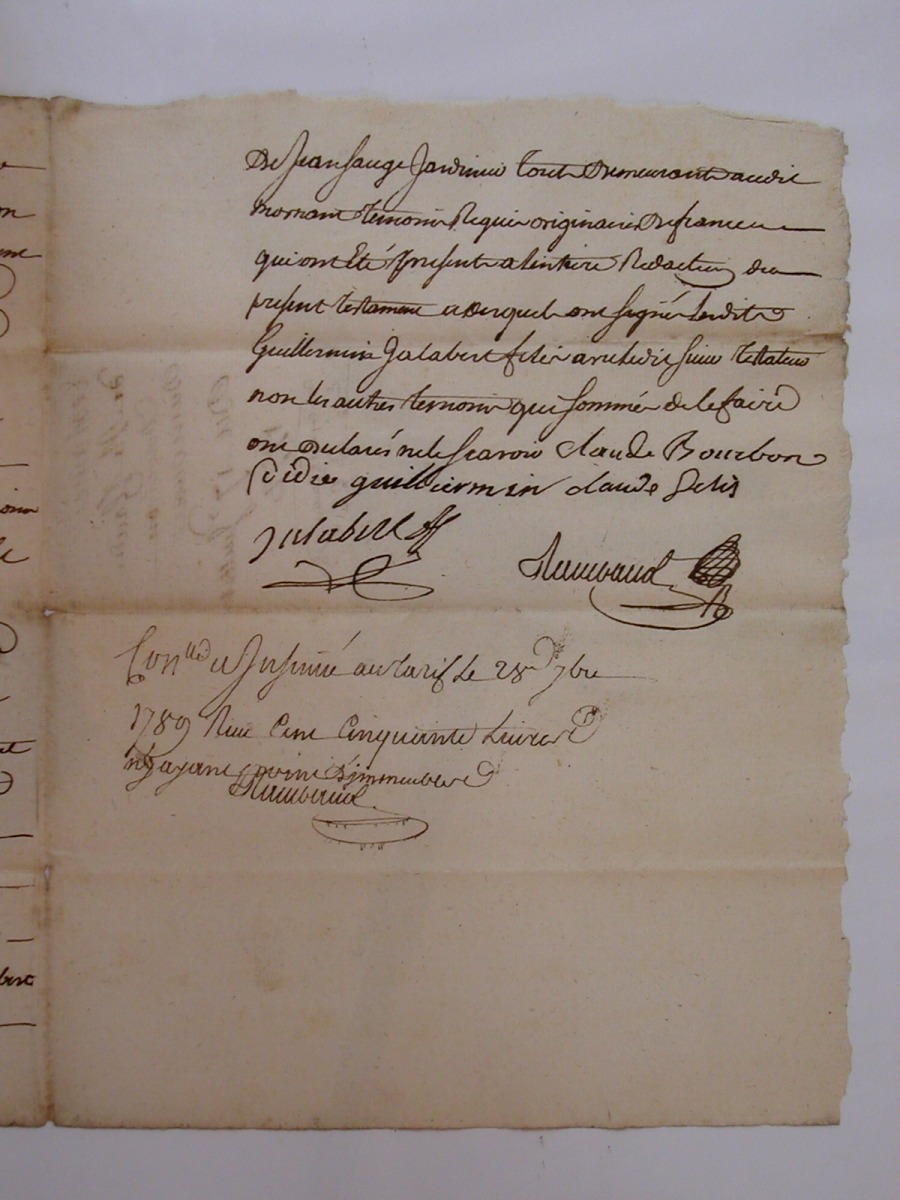 De Jean Sauge Jardinier tous Demeurants audit
mornant temoins Requis originaires De france
qui ont Eté present a lentiere Redaction du
present testament et duquel ont signés lesdits
Guillermin Jalabert filis avec ledit sieur testateur
non les autres temoins qui sommés de le faire
ont declarés ne le scavoir claude Bourbon
guilliermin claude filis
Jalabert
Raimbaud
Con.llé et Insinué au tarif le 28 7bre
1789 Reçu Cent Cinquante Livres
n'ayant point d'immeubles
Raimbaud